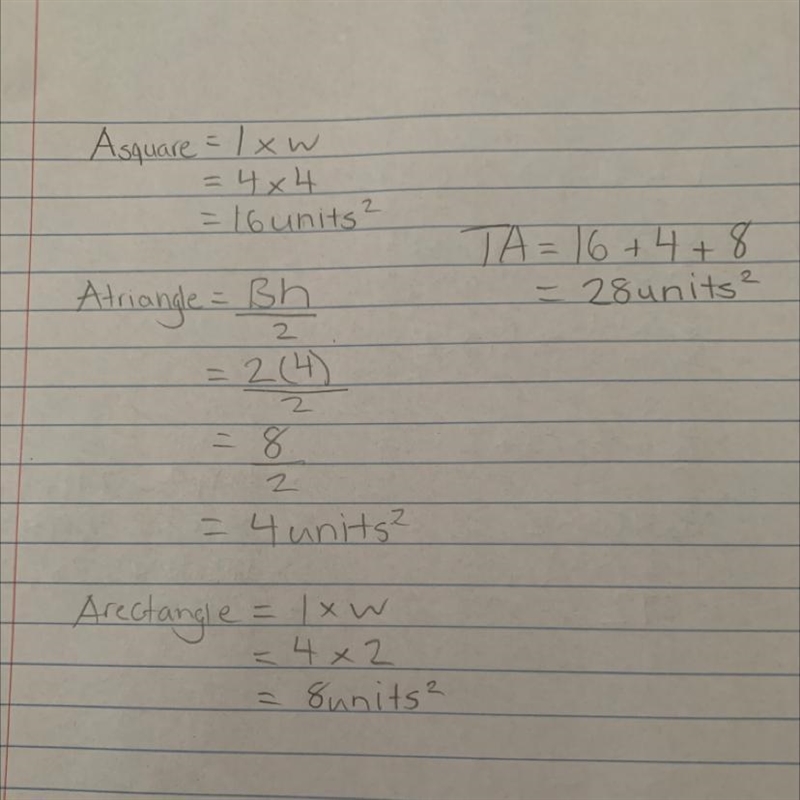 Asquare = l x w
= 4 x 4
= 16 units²
TA = 16 + 4 + 8
= 28 units²
Atriangle = Bh
2
= 2(4)
2
= 8
2
= 4 units²
Arectangle = l x w
= 4 x 2
= 8 units²